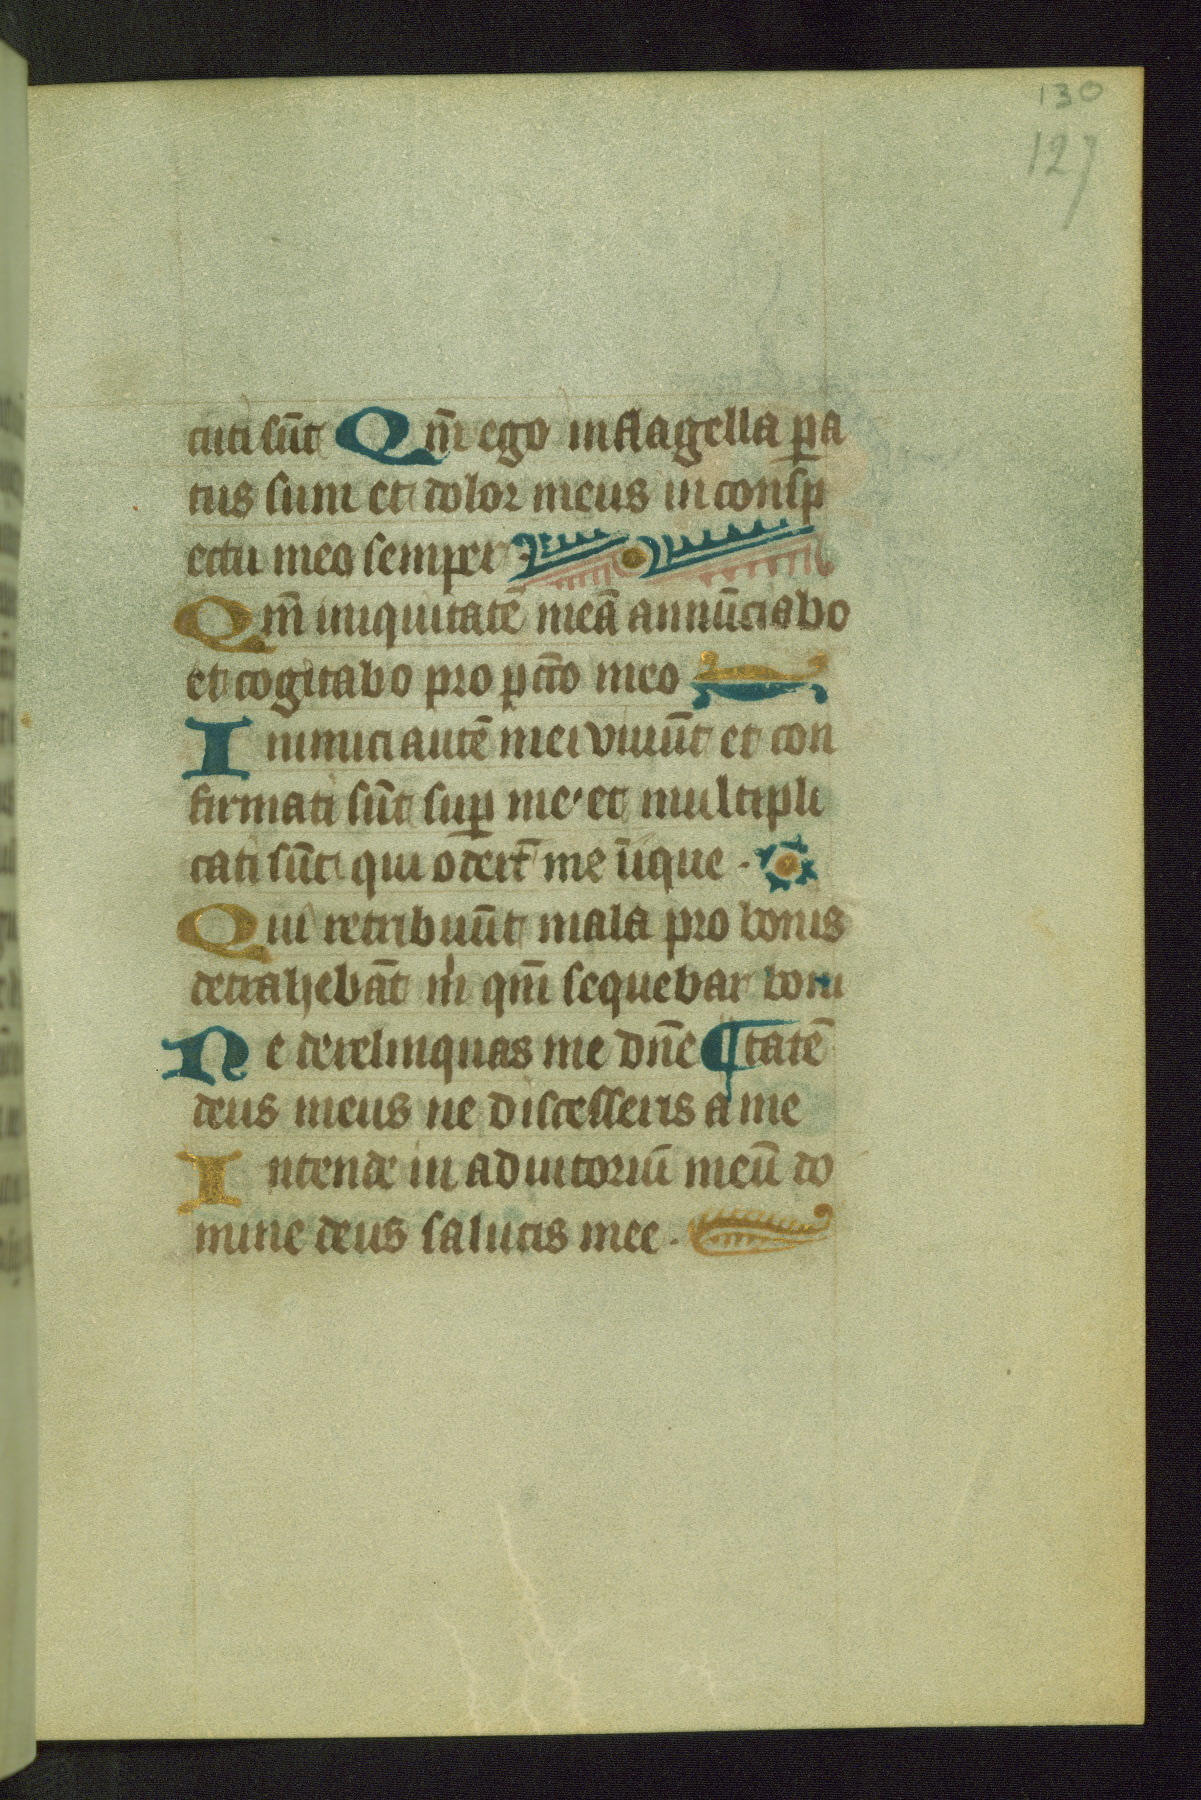 130
127
cuti sūt Qm̄ ego in flagella ꝑa
tus sum et dolor meus in consp
ectu meo semper
Qm̄ iniquitatē meā annūciabo
et cogitabo pro pcc̄o meo
Inimici autē mei viuūt et con
firmati sūt suꝑ me et multipli
cati sūt qui oder̄t me īique .
Qui retribuūt mala pro bonis
detrahebāt m̍ qm̄ sequebar boni
Ne derelinquas me dn̄e ¶ tatē
deus meus ne discesseris a me
Intende in adiutoriū meū do
mine deus salutis mee .